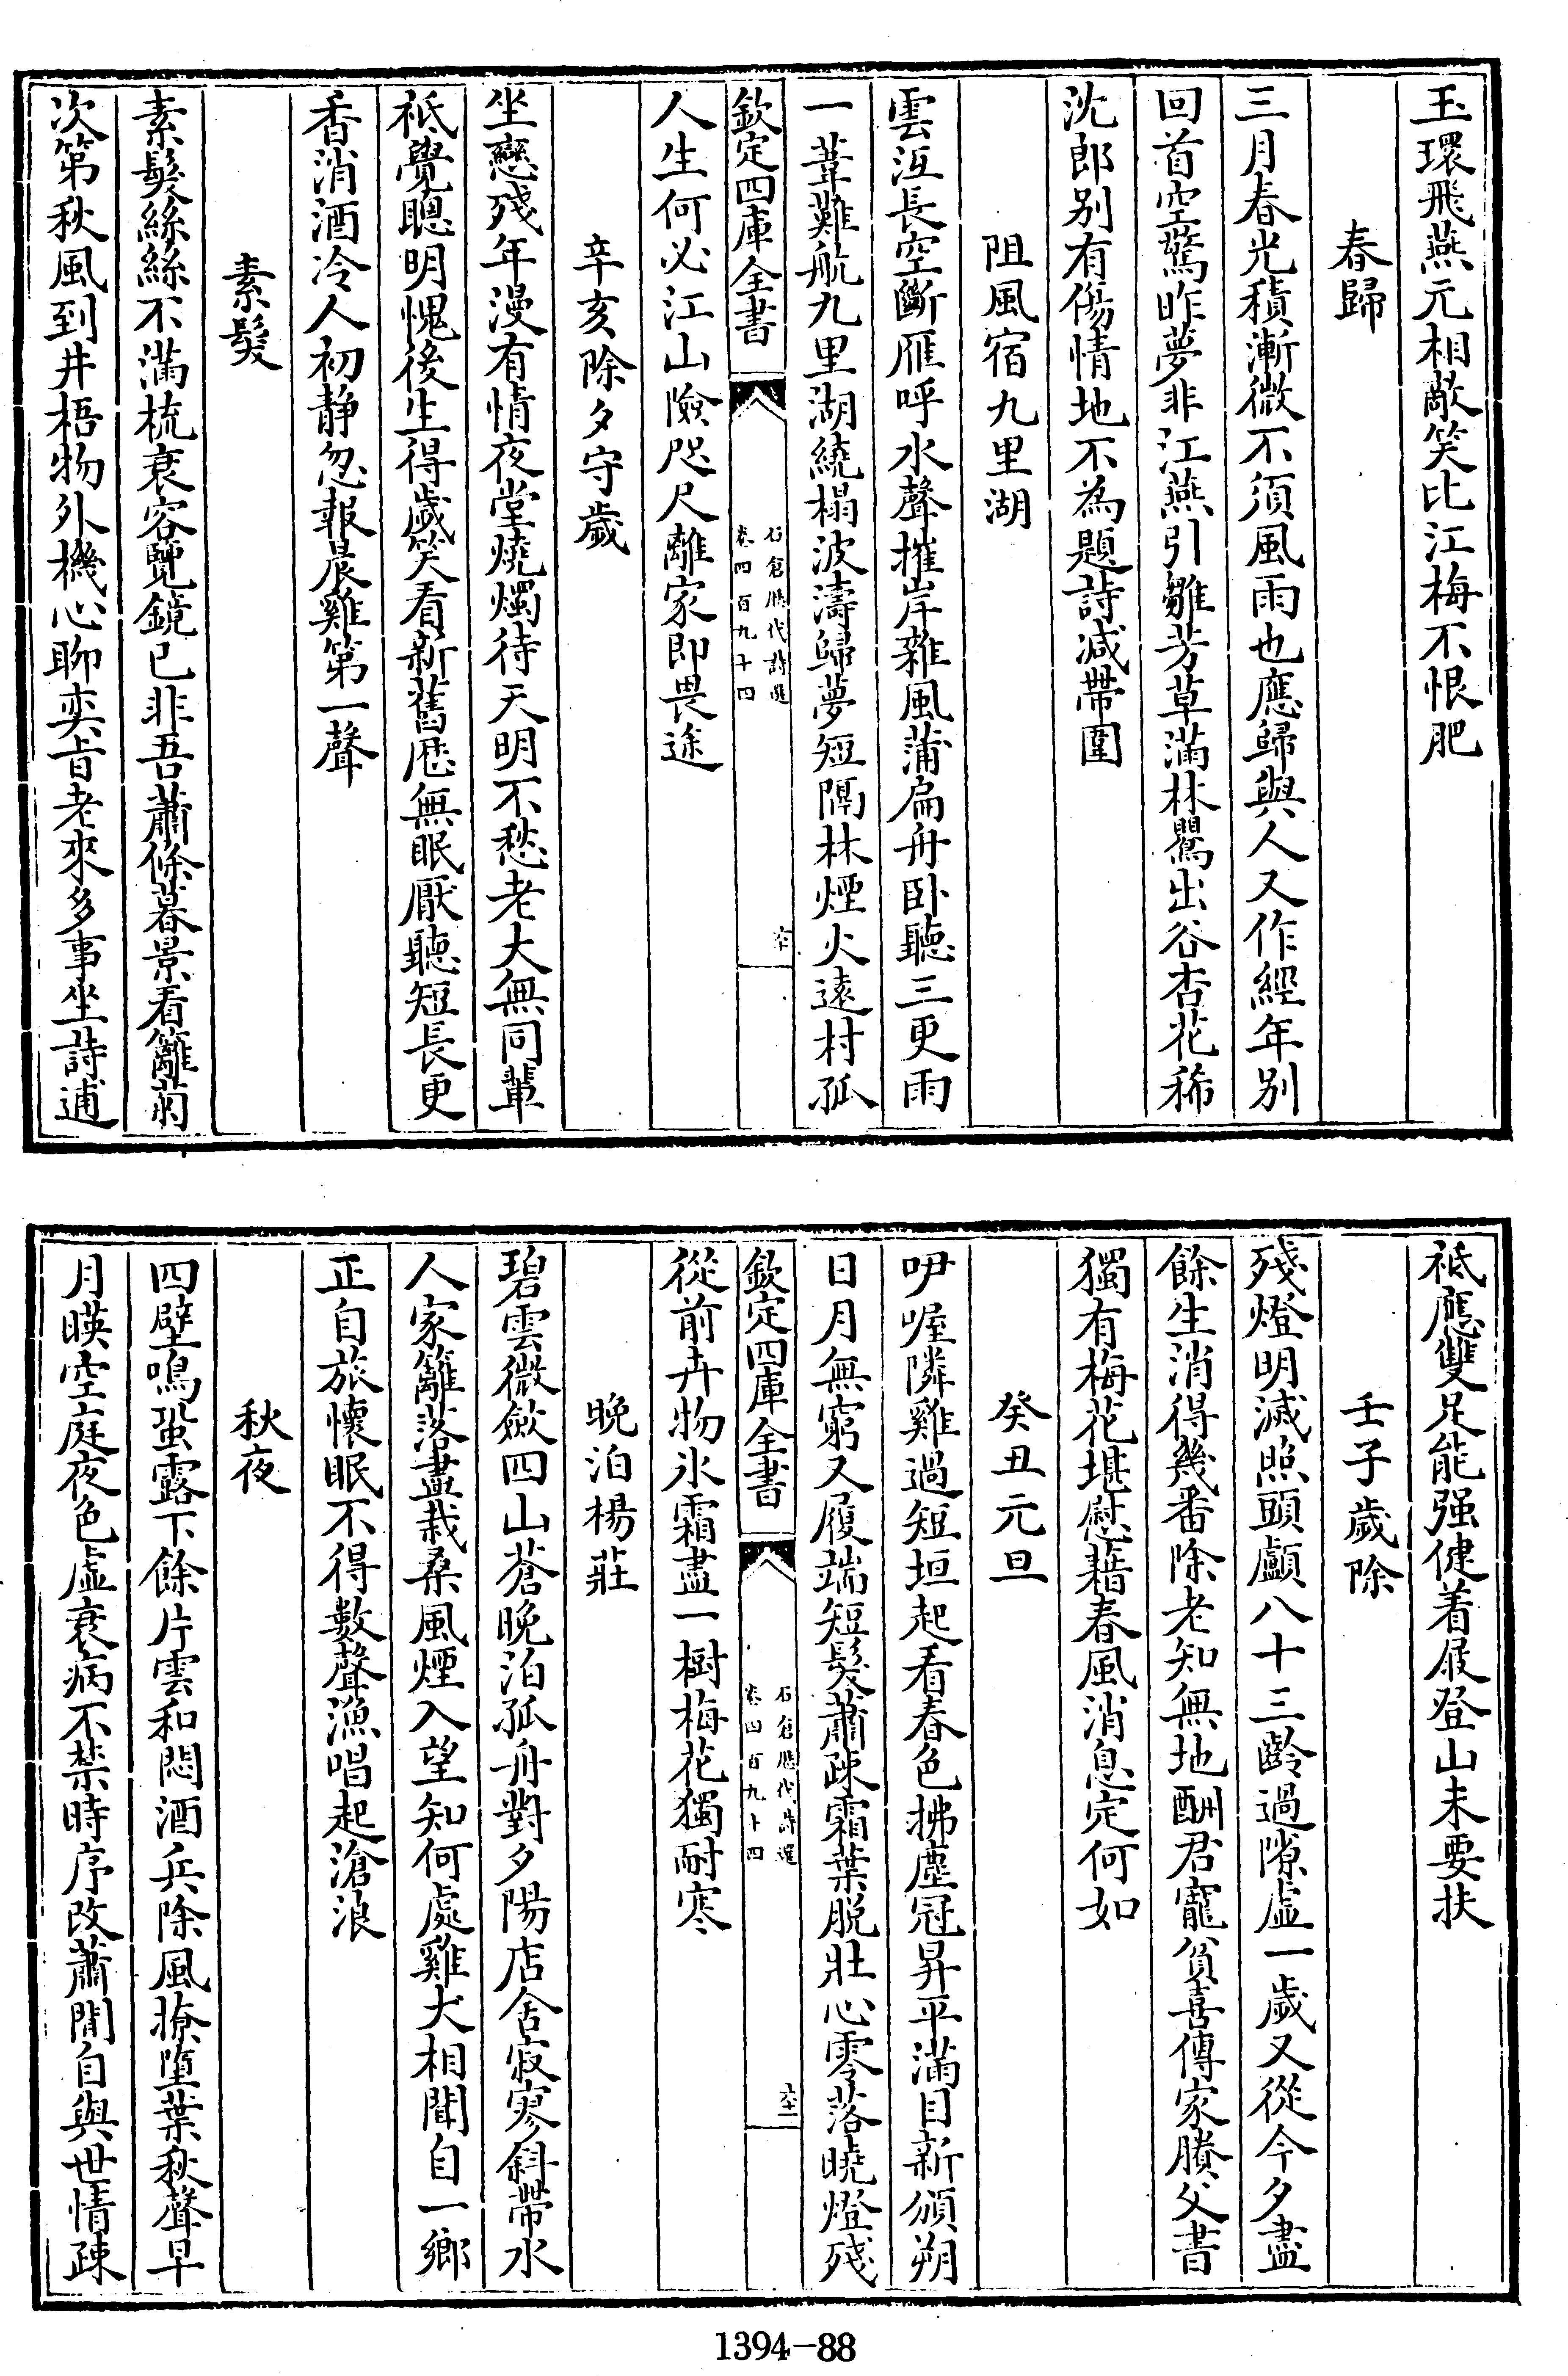 玉環飛燕元相敵笑比江梅不恨肥
春歸
三月春光積漸微不須風雨也應歸與人又作經年别
回首空驚昨夢非江燕引雛芳草滿林鸎出谷杏花稀
沈郎别有傷情地不為題詩減帶圍
阻風宿九里湖
雲沍長空斷雁呼水聲摧岸雜風蒲扁舟卧聽三更雨
一葦難航九里湖繞榻波濤歸夢短隔林煙火遠村孤
欽定四庫全書
石倉歷代詩選
卷四百九十四
六十
人生何必江山險咫尺離家即畏途
辛亥除夕守歲
坐戀殘年漫有情夜堂燒燭待天明不愁老大無同輩
祗覺聰明愧後生得歲笑看新舊厯無眠厭聽短長更
香消酒冷人初静忽報晨雞第一聲
素髮
素髮絲絲不滿梳衰容覽鏡已非吾蕭條暮景看籬菊
次第秋風到井梧物外機心聊奕旨老來多事坐詩逋
祗應雙足能强健着屐登山未要扶
壬子歲除
殘燈明滅照頭顱八十三齡過隙虚一歲又從今夕盡
餘生消得幾番除老知無地酬君寵貧喜傳家賸父書
獨有梅花堪慰藉春風消息定何如
癸丑元旦
吚喔隣雞過短垣起看春色拂塵冠昇平滿目新頒朔
日月無窮又履端短髮蕭疎霜葉脱壯心零落曉燈殘
欽定四庫全書
石倉歷代詩選
卷四百九十四
六十一
從前卉物氷霜盡一樹梅花獨耐寒
晚泊楊莊
碧雲微斂四山蒼晚泊孤舟對夕陽店舍寂寥斜帶水
人家籬落盡栽桑風煙入望知何處雞犬相聞自一鄉
正自旅懷眠不得數聲漁唱起滄浪
秋夜
四壁鳴蛩露下餘片雲和悶酒兵除風撩墮葉秋聲早
月暎空庭夜色虚衰病不禁時序改蕭閒自與世情疎
1394-88